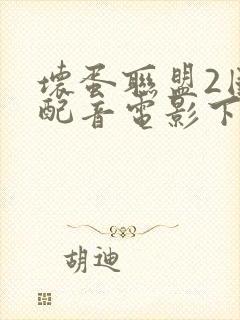 壞蛋聯盟2國
配音電影下
胡迪